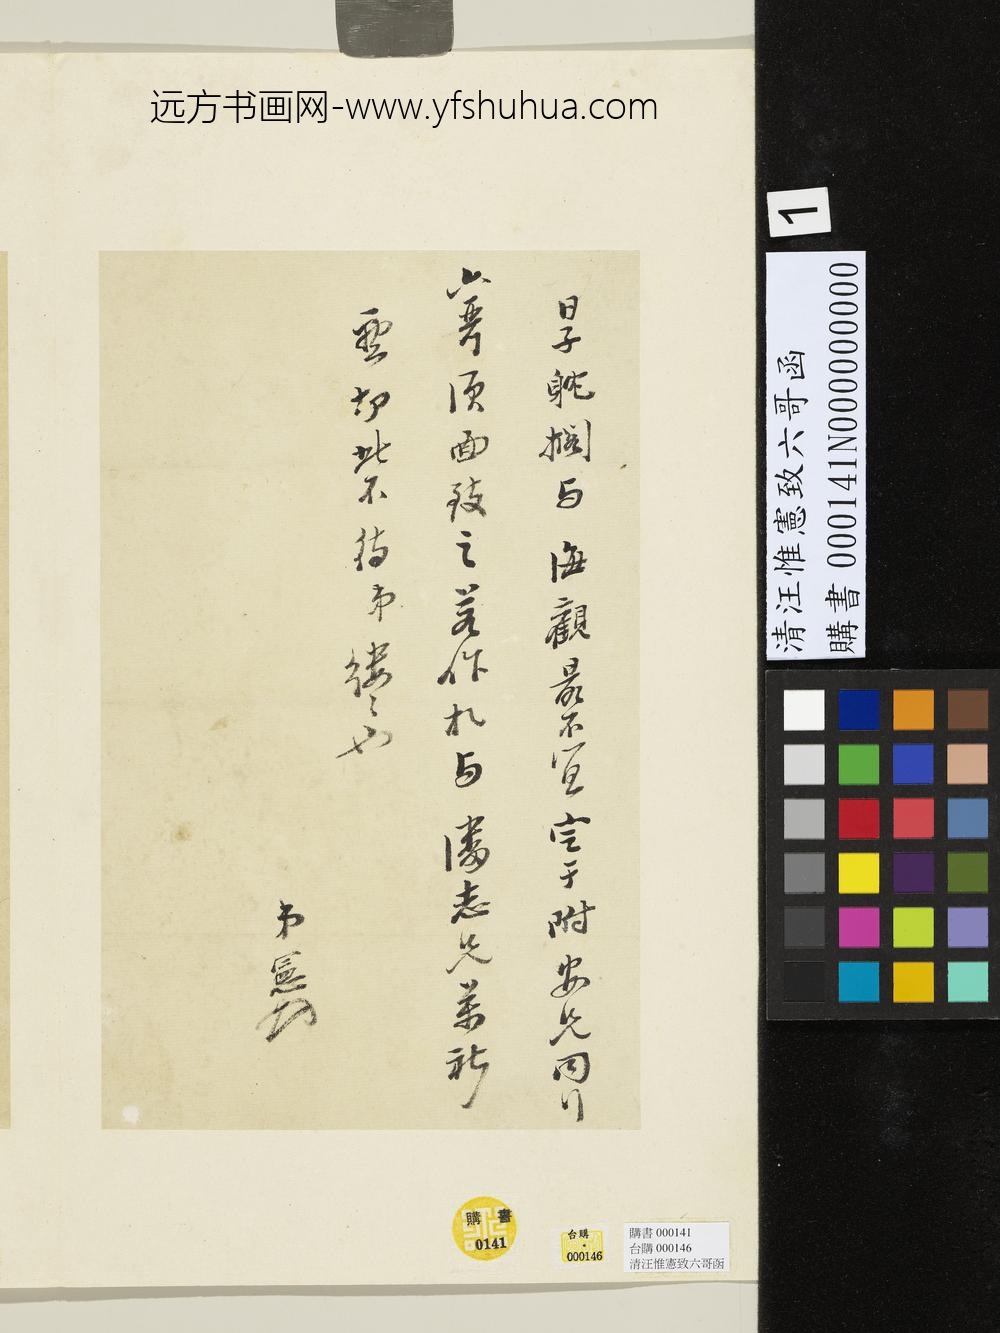 远方书画网-www.yfshuhua.com
日子躭擱与 海觀最不宜 定于附安兄同行
六哥須面致之 若作札与 潘志兄 萬祈
照却 此不待弟縷之也
弟憲
1
清汪惟憲致六哥函
購書 000141N000000000
購書
0141
台購
000146
購書 000141
台購 000146
清汪惟憲致六哥函